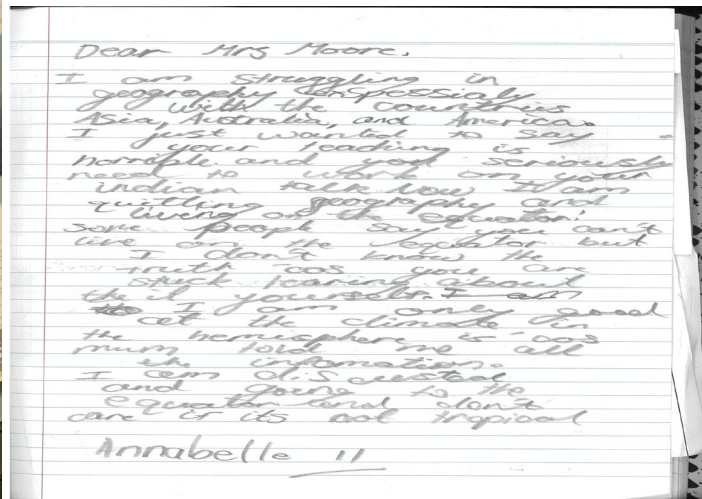 Dear Mrs Moore,
I am struggling in
geography conspessialy
with the countries
Asia, Australia, and America.
I just wanted to say
your teaching is
horrible and you seriously
need to work on your
indian talk. Now I am
quitting geography and
living on the equator.
some people say you can't
live on the equator but
I don't know the
truth cos you are
stuck learing about
the it yourself. I am
I am only good
at the climate in
the hemisphere is cos
mum told me all
the information.
I am discusted
and going to the
equator and don't
care if its not tropical
Annabelle 11